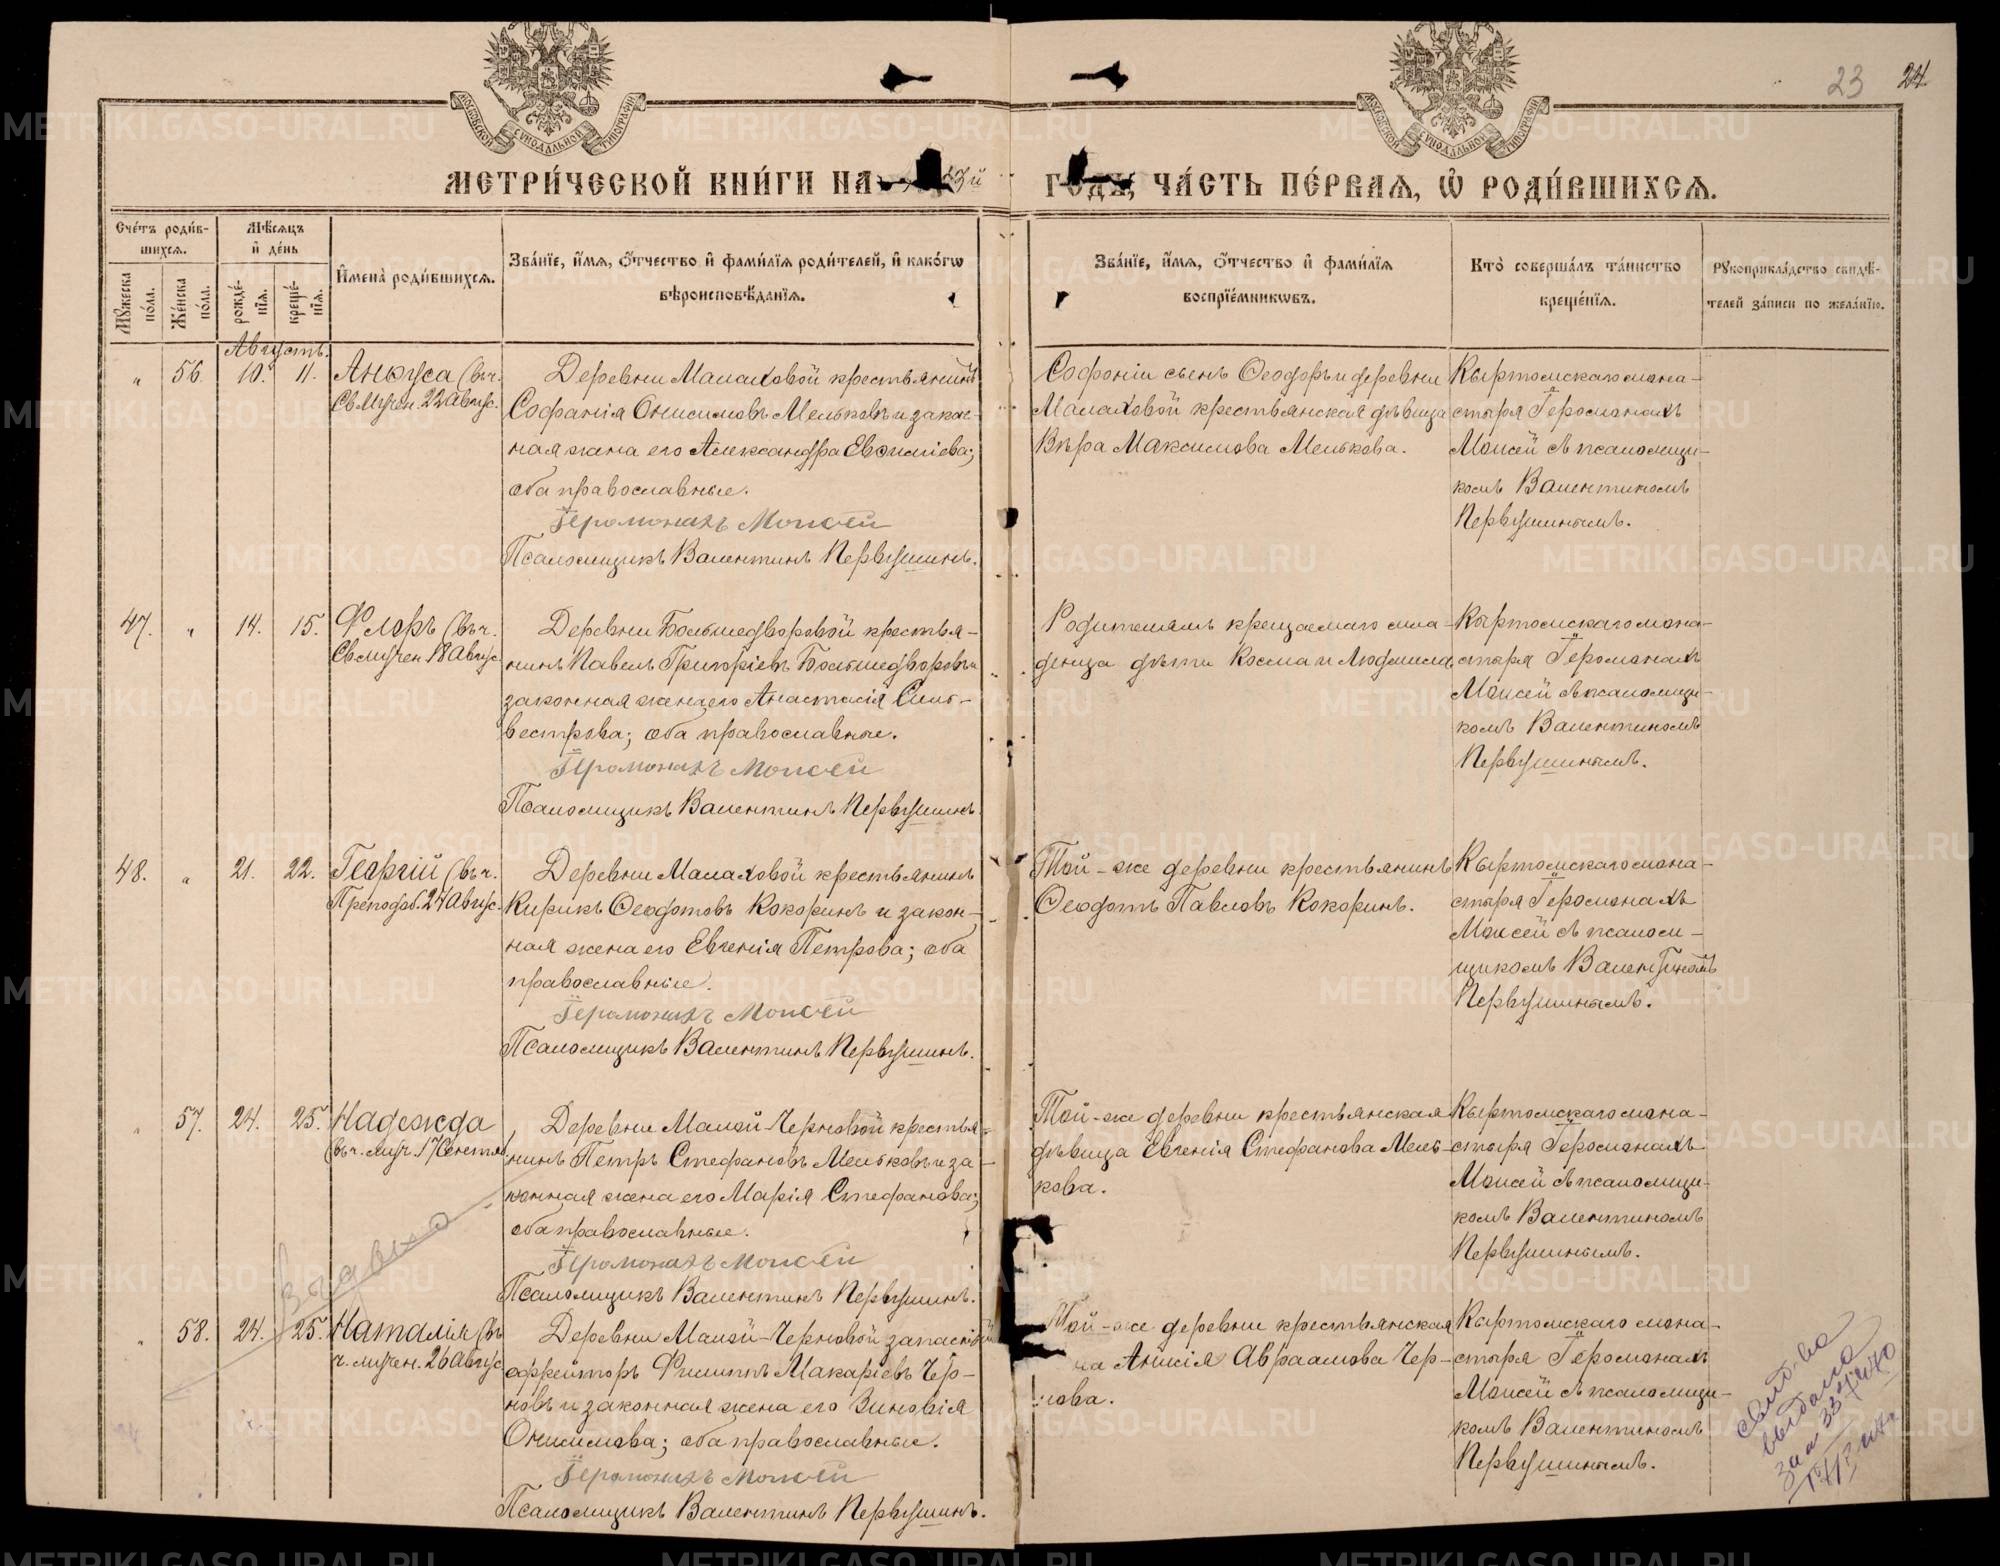 23 24
МОСКОВСКОЙ СѴНОДАЛЬНОЙ ТИПОГРАФІИ
МОСКОВСКОЙ СѴНОДАЛЬНОЙ ТИПОГРАФІИ
МЕТРИ́ЧЕСКОЙ КНИ́ГИ НА ГОДЪ, ЧА́СТЬ ПЕ́РВАЯ, Ѡ҆ РОДИ́ВШИХСЯ.
Сче́тъ роди́в-
шихся.
Мѣ́сяцъ
и҆ де́нь
Мꙋ́жеска по́ла.
Же́нска по́ла.
рожде́-
нїя.
креще́-
нїя.
И҆мена̀ роди́вшихся.
Зва́нїе, и҆́мя, ѻ҆́тчество и҆ фами́лїя роди́телей, и҆ како́гѡ
вѣроисповѣ́данїя.
Зва́нїе, и҆́мя, ѻ҆́тчество и҆ фами́лїя
воспрїе́мникѡвъ.
Кто̀ соверша́лъ та́инство
креще́нїя.
Рꙋкоприкла́дство свидѣ́-
телей за́писи по жела́нїю.
Августъ.
" 56. 10. 11. Анѳуса (въ ч.
Св. Мучен. 22 Август.
Деревни Малаховой крестьянинъ
Софонія Онисимовъ Мельковъ и закон-
ная жена его Александра Евѳиміева;
оба православные.
Іеромонахъ Моисей
Псаломщикъ Валентинъ Первушинъ.
Софоніи сынъ Ѳеодоръ и деревни
Малаховой крестьянская дѣвица
Вѣра Максимова Мелькова.
Кыртомскаго мона-
стыря Іеромонахъ
Моисей съ псаломщи-
комъ Валентиномъ
Первушинымъ.
47. " 14. 15. Флоръ (въ ч.
Св. мучен. 18 Август.
Деревни Большедворовой крестья-
нинъ Павелъ Григоріевъ Большедворовъ и
законная жена его Анастасія Силь-
вестрова; оба православные.
Іеромонахъ Моисей
Псаломщикъ Валентинъ Первушинъ.
Родителямъ крещаемаго мла-
денца дѣти Косма и Людмила.
Кыртомскаго мона-
стыря Іеромонахъ
Моисей съ псаломщи-
комъ Валентиномъ
Первушинымъ.
48. " 21. 22. Георгій (въ ч.
Преподоб. 24 Август.
Деревни Малаховой крестьянинъ
Кирикъ Ѳеодотовъ Кокоринъ и закон-
ная жена его Евгенія Петрова; оба
православные.
Іеромонахъ Моисей
Псаломщикъ Валентинъ Первушинъ.
Той-же деревни крестьянинъ
Ѳеодотъ Павловъ Кокоринъ.
Кыртомскаго мона-
стыря Іеромонахъ
Моисей съ псалом-
щикомъ Валентиномъ
Первушинымъ.
" 57. 24. 25. Надежда
(въ ч. муч. 17 Сентяб.
Деревни Малой-Черновой крестья-
нинъ Петръ Стефановъ Мельковъ и за-
конная жена его Марія Стефанова;
оба православные.
Іеромонахъ Моисей
Псаломщикъ Валентинъ Первушинъ.
Той-же деревни крестьянская
дѣвица Евгенія Стефанова Мель-
кова.
Кыртомскаго мона-
стыря Іеромонахъ
Моисей съ псаломщи-
комъ Валентиномъ
Первушинымъ.
выдано
" 58. 24. 25. Наталія (въ
ч. мучен. 26 Август.
Деревни Малой-Черновой запасный
ефрейторъ Филиппъ Макаріевъ Чер-
новъ и законная жена его Зиновія
Онисимова; оба православные.
Іеромонахъ Моисей
Псаломщикъ Валентинъ Первушинъ.
Той-же деревни крестьянская
на Анисія Авраамова Чер-
нова.
Кыртомскаго мона-
стыря Іеромонахъ
Моисей съ псаломщи-
комъ Валентиномъ
Первушинымъ.
выдано
METRIKI.GASO-URAL.RU